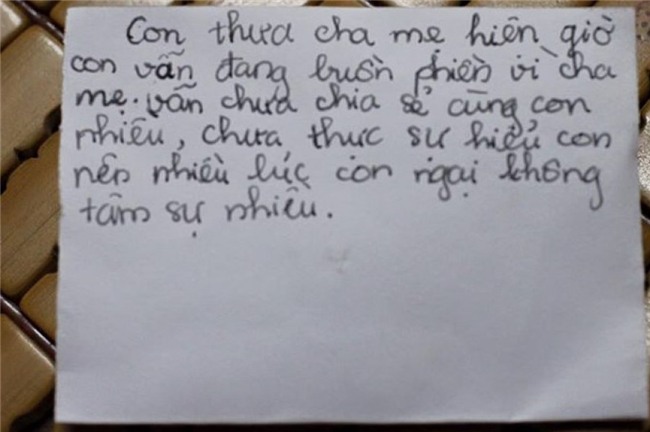 Con thưa cha mẹ hiện giờ
con vẫn đang buồn phiền vì cha
mẹ. vẫn chưa chia sẻ cùng con
nhiều, chưa thực sự hiểu con
nên nhiều lúc con ngại không
tâm sự nhiều.